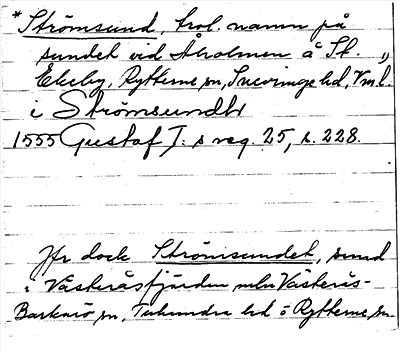 *Strömsund, trol. namn på
sundet vid Åholmen å St.
Ekeby, Rytterne sn, Snevringe hd, Vml.
i Strömsundh
1555 Gustaf I:s reg. 25, s. 228.
Jfr dock Strömsundet, sund
i Västeråsfjärden mln Västerås-
Barkarö sn, Tuhundra hd o Rytterne sn.